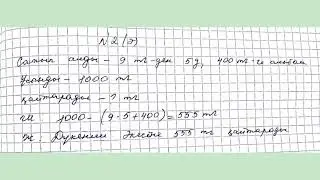 №2 (3)
Сатып алды - 9 тг-ден 5 д, 400 тг-ге
Ұсынды - 1000 тг
Қайтарады - ? тг
1000 - (9 · 5 + 400) = 555 тг
Ж: Дүкенші 555 тг қайтарады